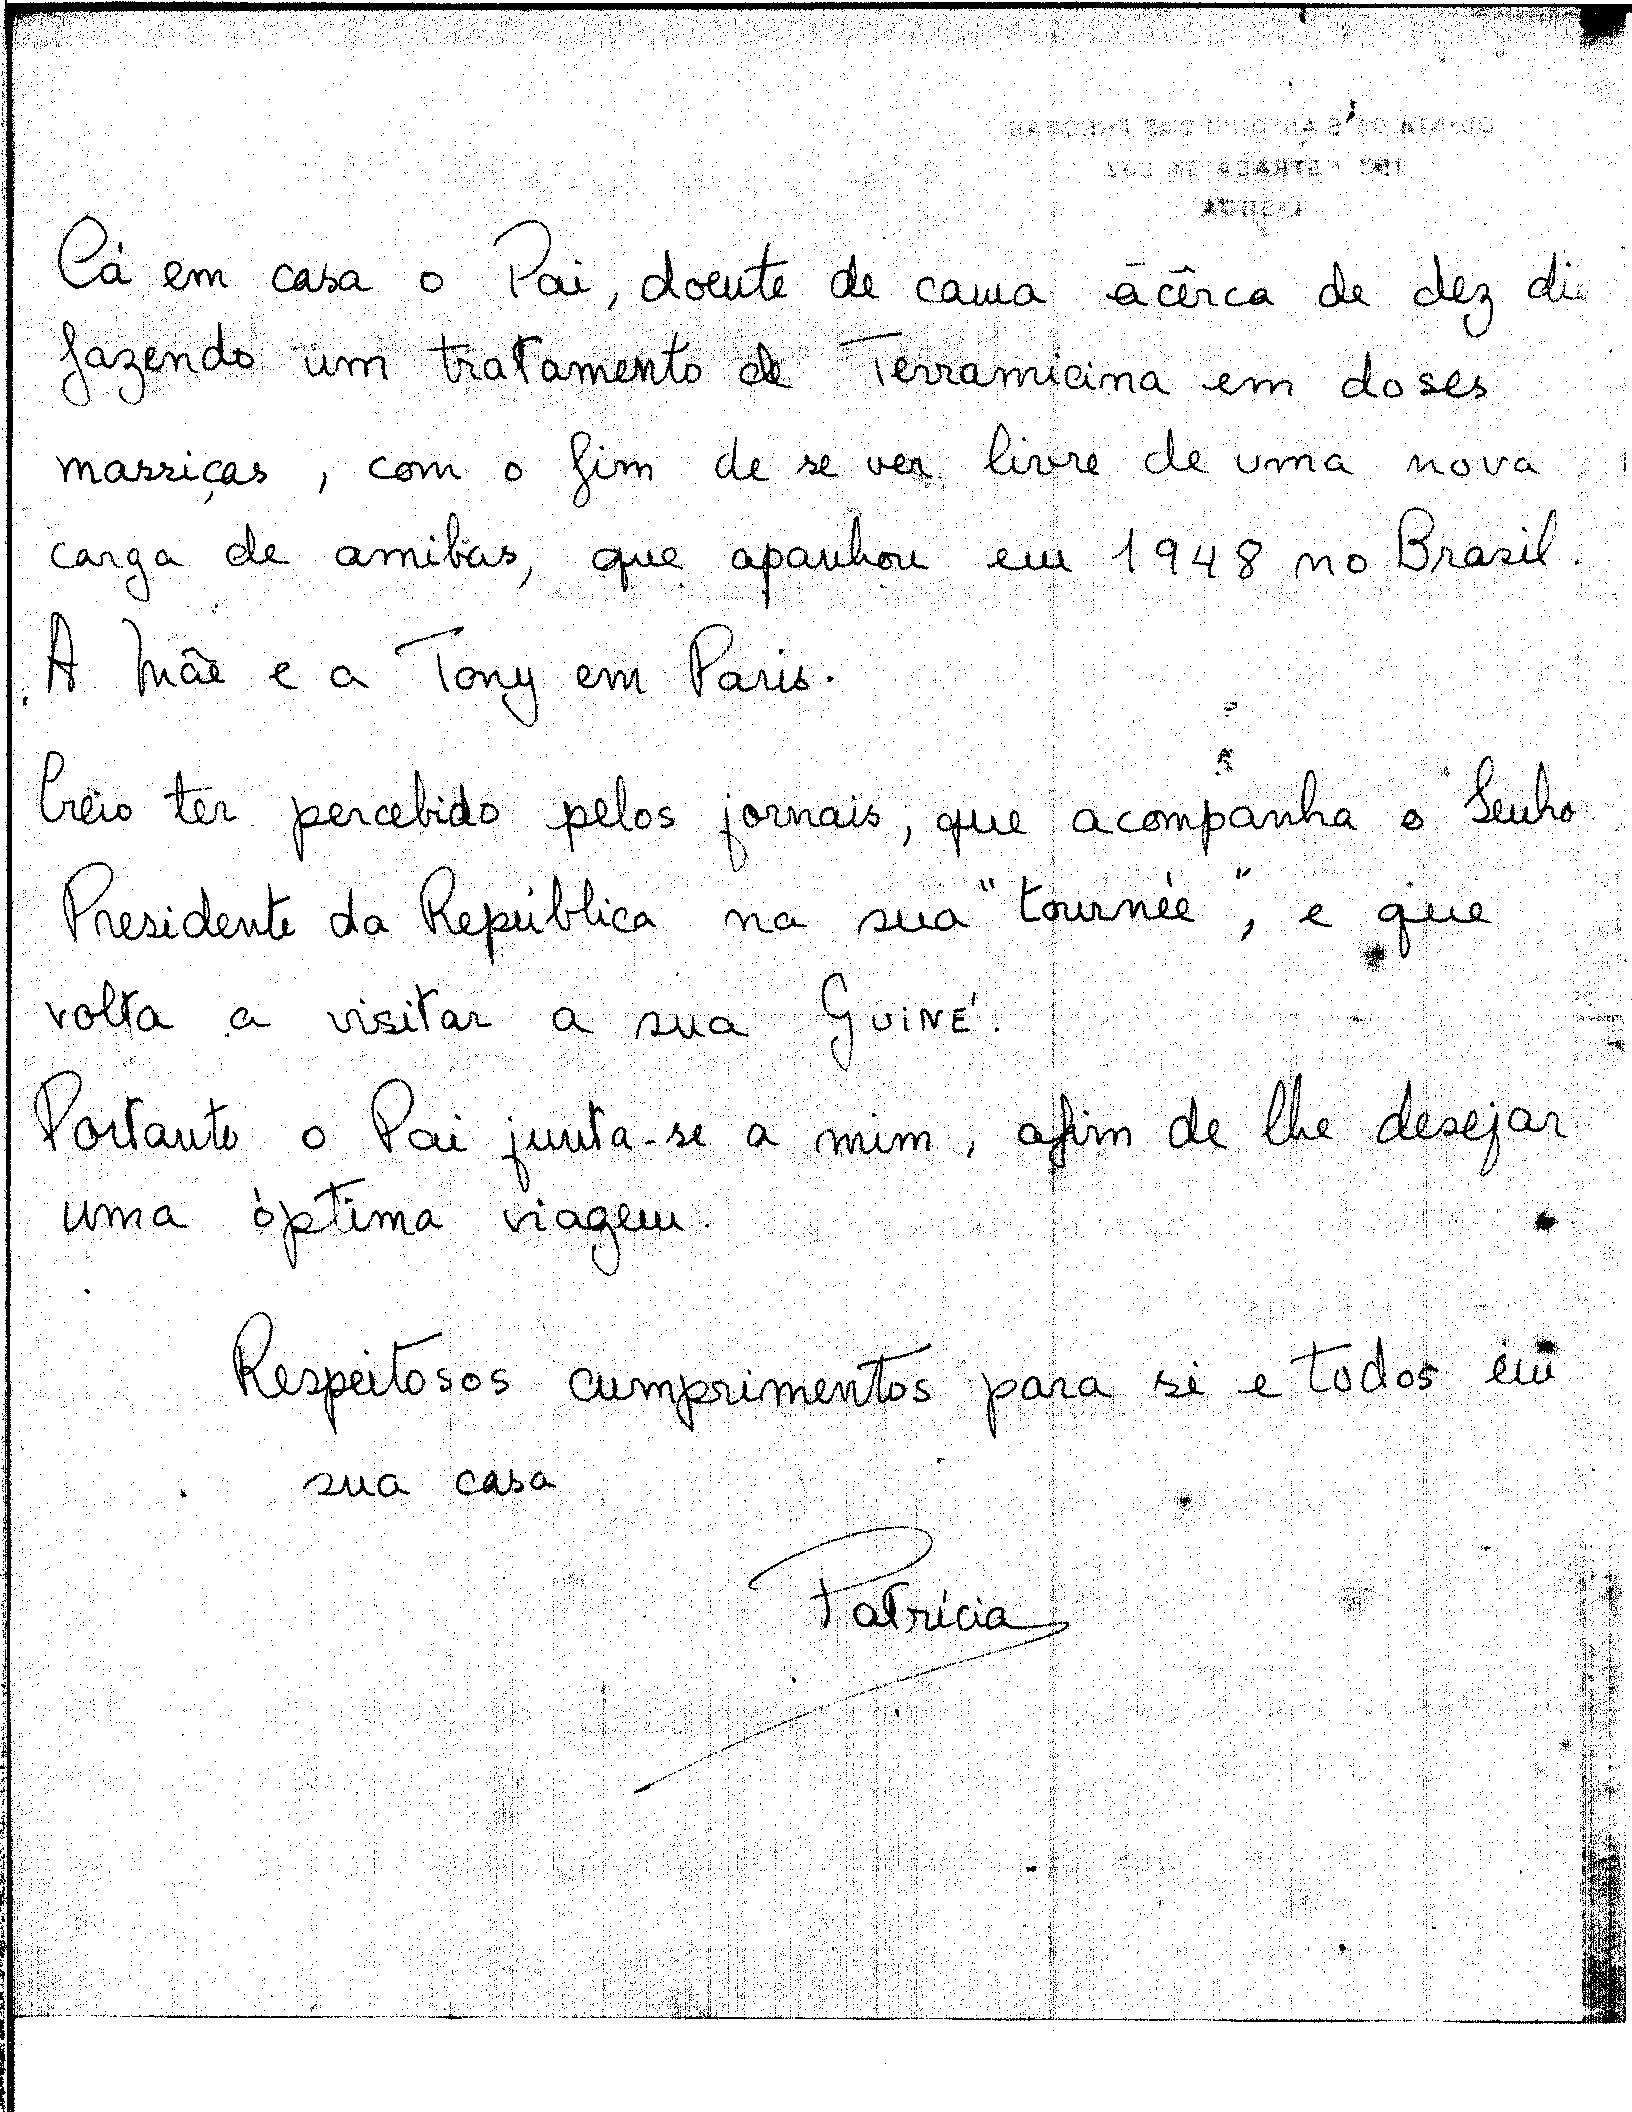 Cá em casa o Pai, doente de cama àcêrca de dez di
fazendo um tratamento de Terramicina em doses
massiças, com o fim de se ver livre de uma nova
carga de amibas, que apanhou em 1948 no Brasil.
A Mãe e a Tony em Paris.
Creio ter percebido pelos jornais, que acompanha o Senho
Presidente da República na sua "tournée", e que
volta a visitar a sua GUINÉ.
Portanto o Pai junta-se a mim, afim de lhe desejar
uma óptima viagem.
Respeitosos cumprimentos para si e todos em
sua casa
Patrícia